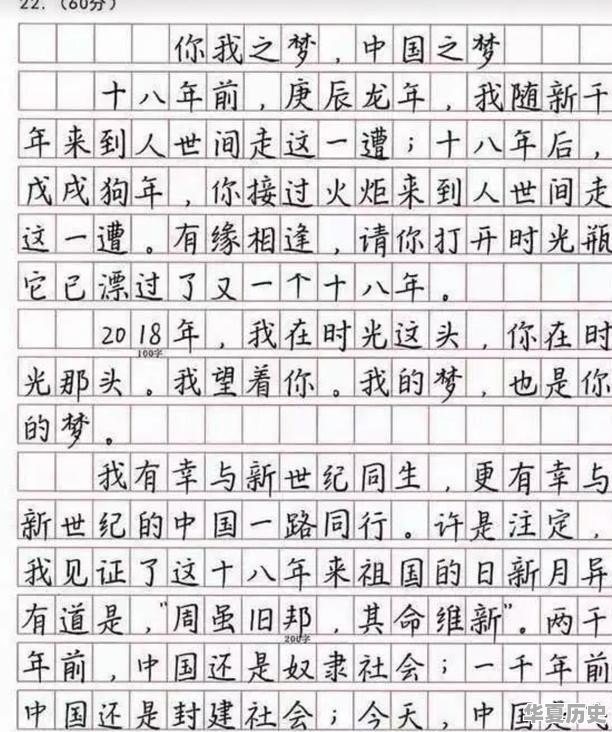 22.（60分）
你我之梦，中国之梦
十八年前，庚辰龙年，我随新千
年来到人世间走这一遭；十八年后，
戊戌狗年，你接过火炬来到人世间走
这一遭。有缘相逢，请你打开时光瓶
它已漂过了又一个十八年。
2018年，我在时光这头，你在时
100字
光那头。我望着你。我的梦，也是你
的梦。
我有幸与新世纪同生，更有幸与
新世纪的中国一路同行。许是注定，
我见证了这十八年来祖国的日新月异
有道是，"周虽旧邦，其命维新"。两千
200字
年前，中国还是奴隶社会；一千年前
中国还是封建社会；今天，中国
华夏历史